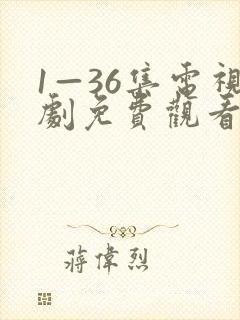 1—36集電視
劇免費觀看
蔣偉烈